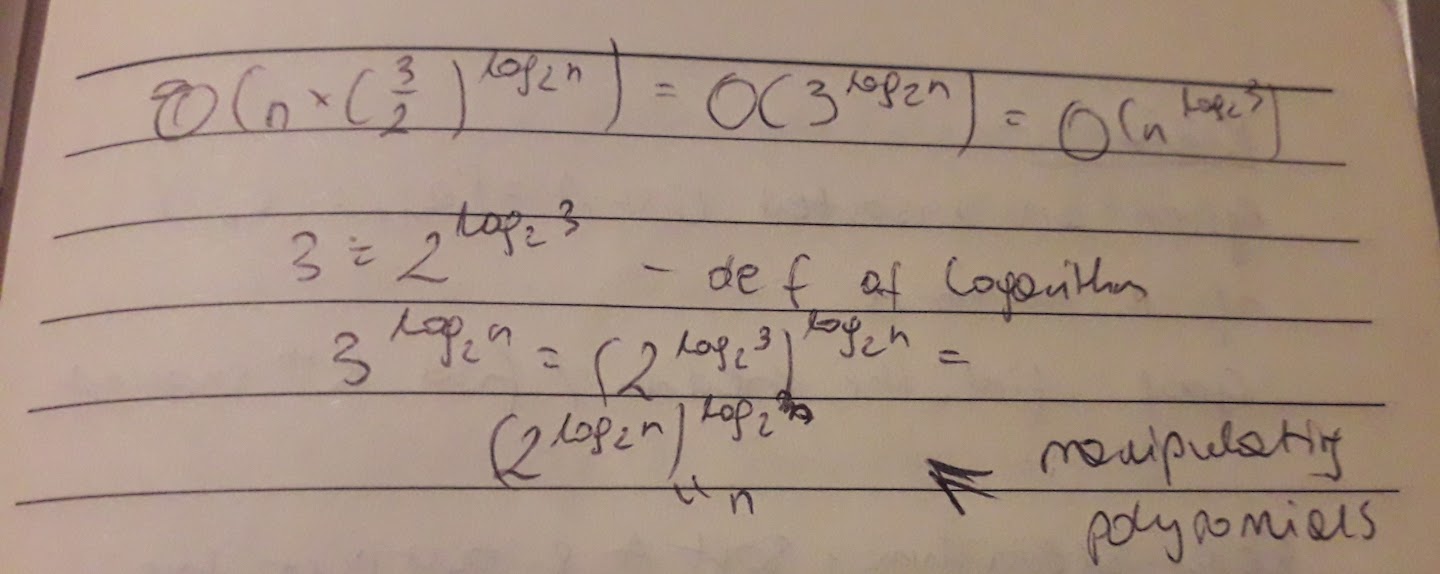 O(n × (3/2)^log₂n) = O(3^log₂n) = O(n^log₂3)
3 = 2^log₂3 - def of logarithm
3^log₂n = (2^log₂3)^log₂n =
(2^log₂n)^log₂3
manipulating
" n
polynomials